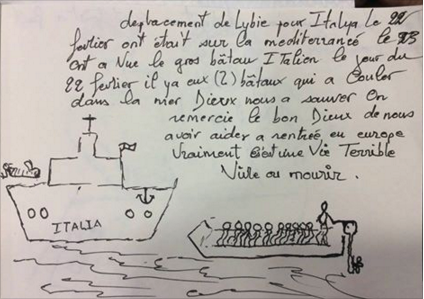 deplacement de Lybie pour Italya Le 22
fevrier ont était sur la mediterrané le 23
ont a Vue le gros bâtau ITalien le jour du
22 fevrier il ya eux (2) bâtaux qui a Couler
dans la mer Dieux nous a sauver On
remercie le bon Dieux de nous
avoir aider a rentrée en europe
Vraiment c'est une Vie Terrible
Vivre ou mourir.
ITALIA